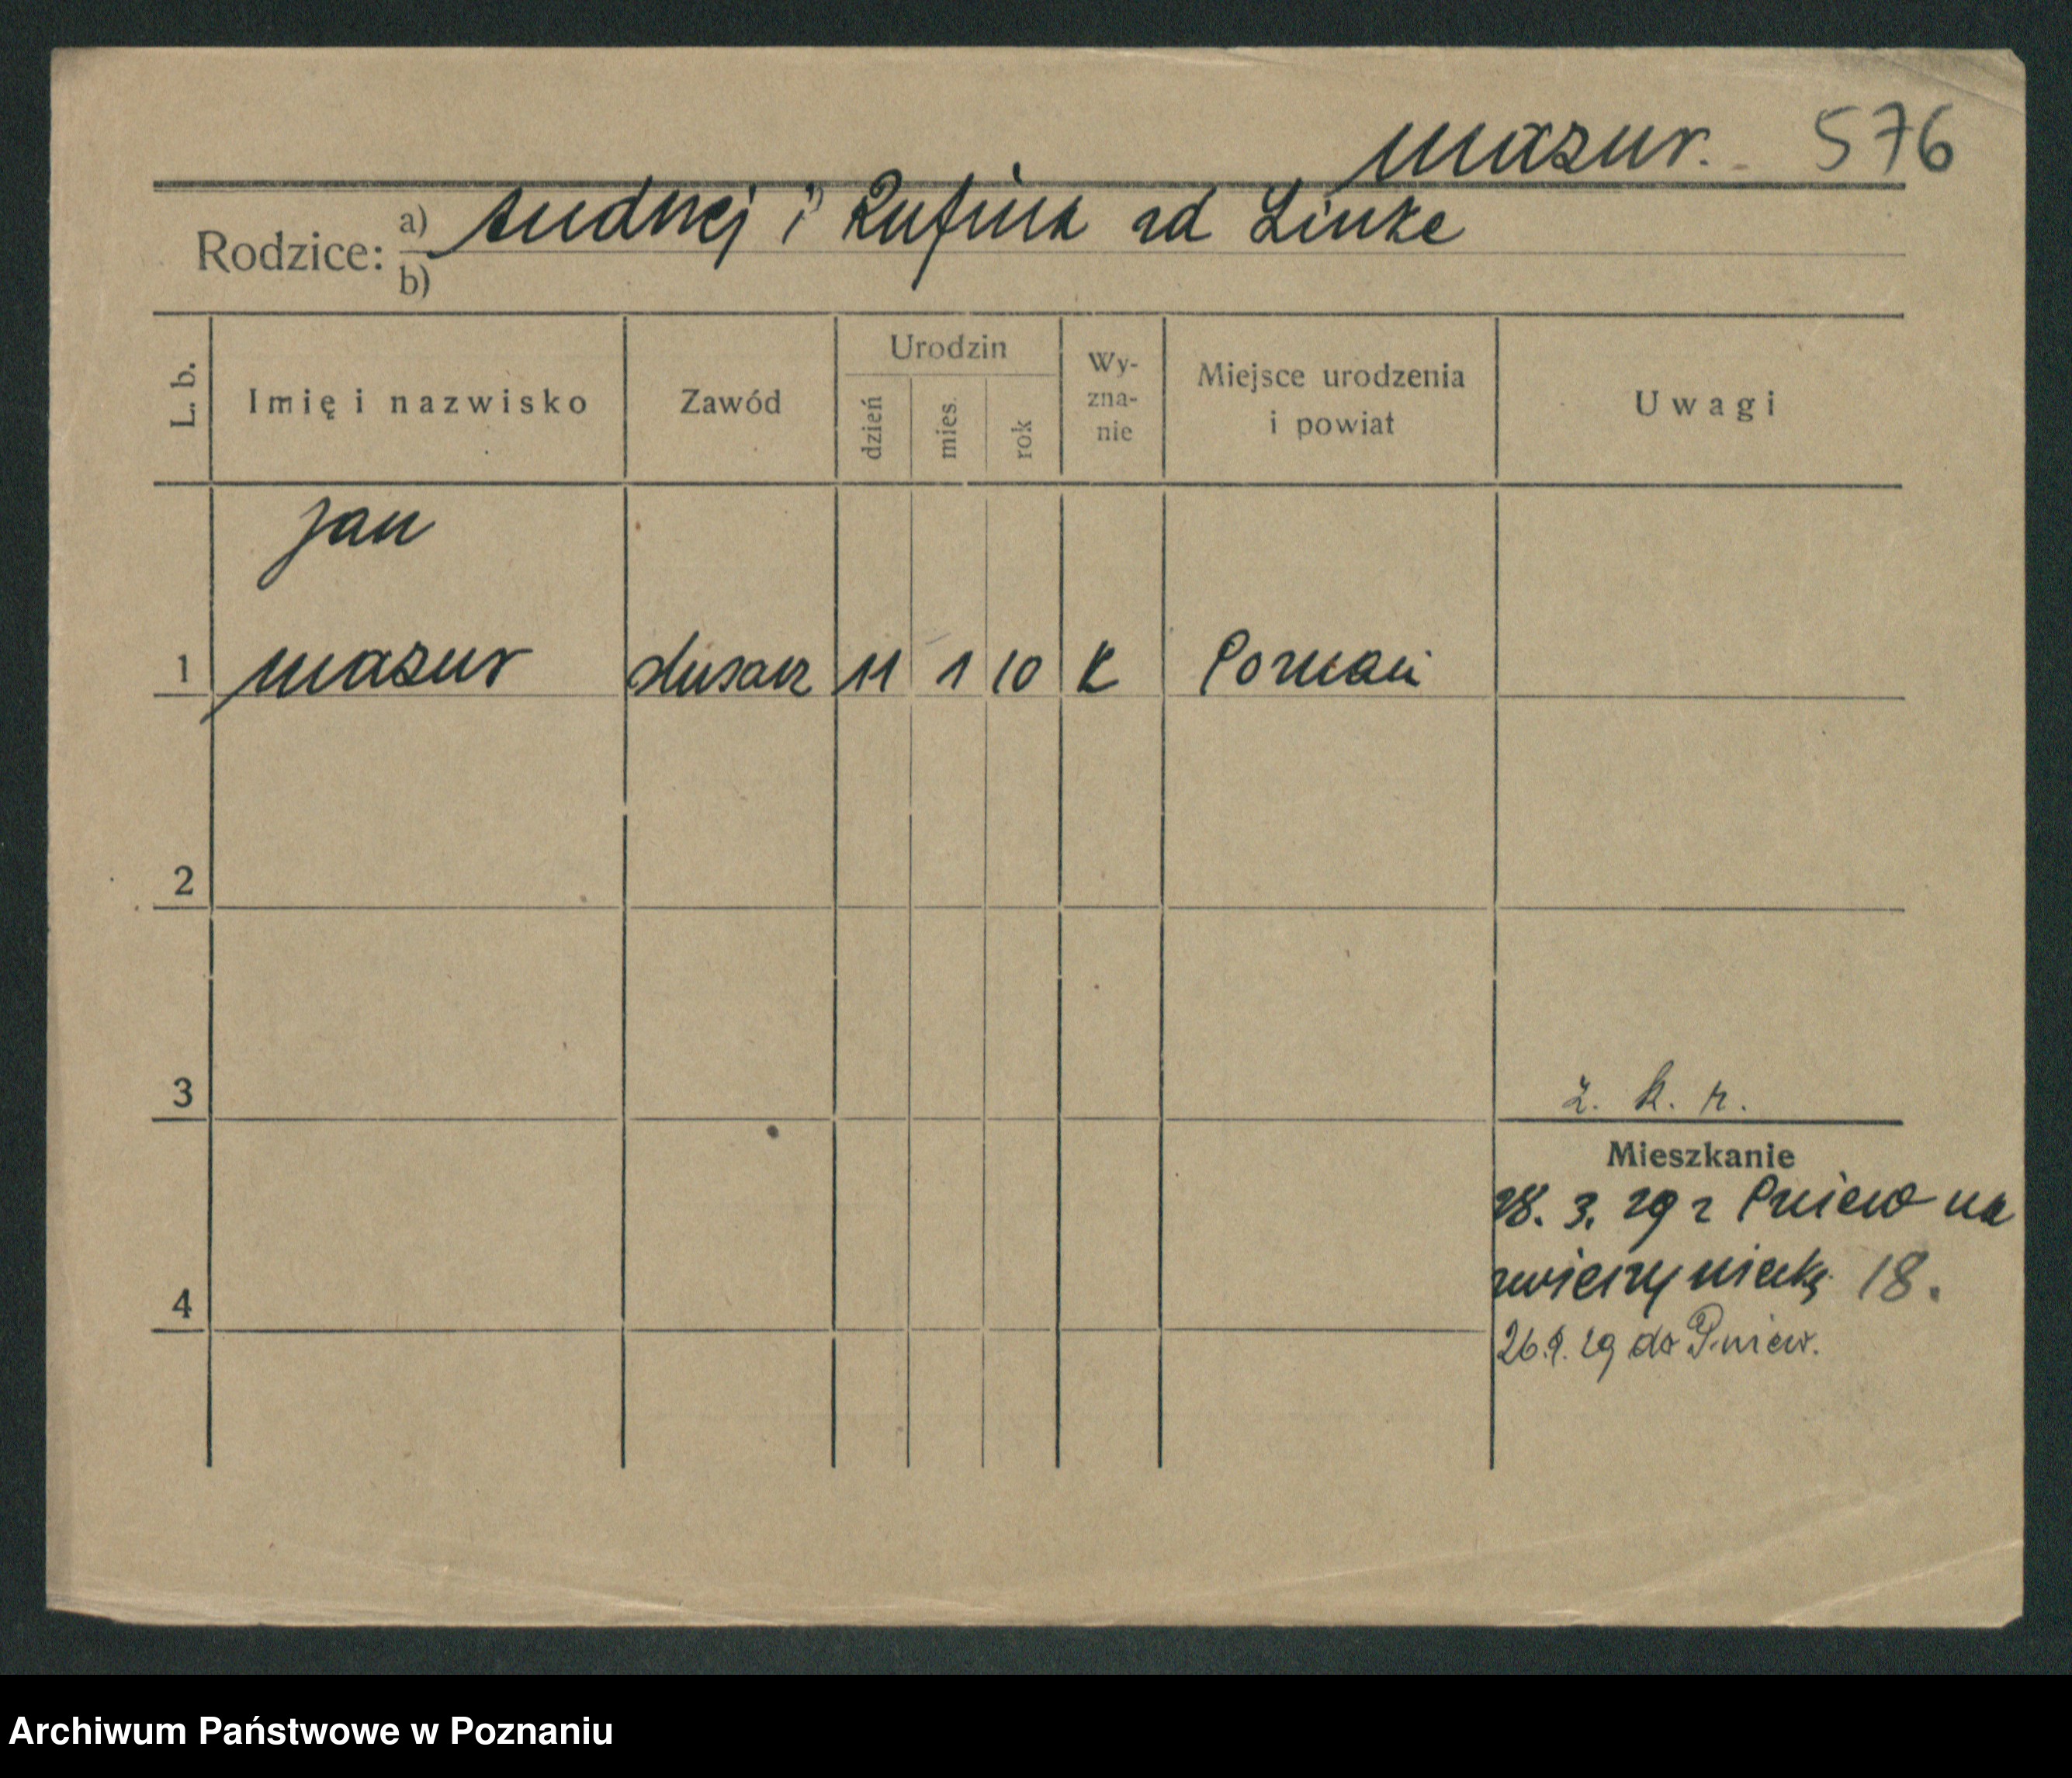 Mazur. 576
Rodzice: a) Andrzej i Rufina zd Linke
b)
L. b. Imię i nazwisko Zawód Urodzin dzień mies. rok Wy-zna-nie Miejsce urodzenia i powiat Uwagi
Jan
1 Mazur ślusarz 11 1 10 k Poznań
2
3
ż. k. r.
Mieszkanie
28. 3. 29 z Pniew na
4 zwierzyniecką 18.
26.9.29 do Pniew.
Archiwum Państwowe w Poznaniu